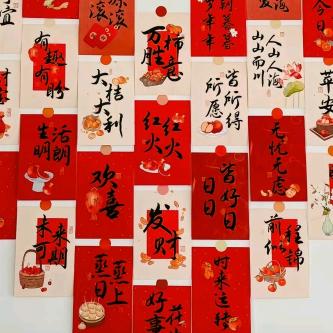 滚滚
今日
有趣
有盼
万柿
胜意
山山而川
人山人海
大桔
大利
所愿
皆所得
苹安
生活
明朗
红红
火火
无忧无虑
欢喜
日日
皆好日
未来
可期
发财
前程
似锦
蒸蒸
日上
时来运转
好花
事